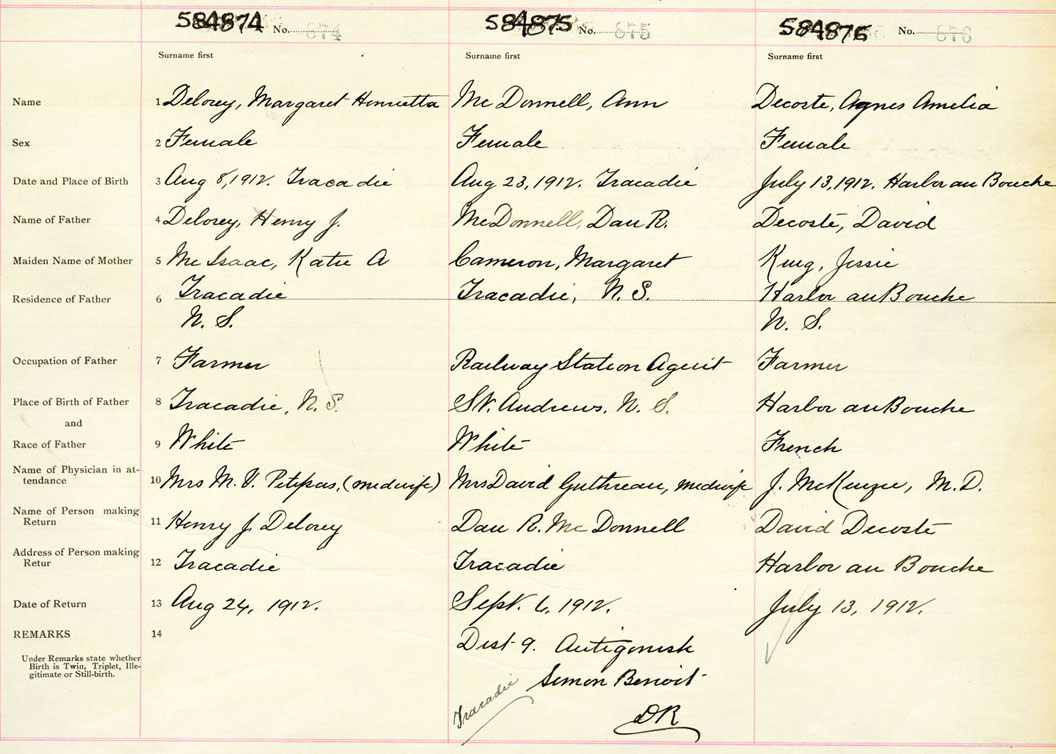 584874 No. 674 584875 No. 675 584876 No. 676
Surname first Surname first Surname first
Name 1 Delorey, Margaret Henrietta Mc Donnell, Ann Decoste, Agnes Amelia
Sex 2 Female Female Female
Date and Place of Birth 3 Aug 8, 1912. Tracadie Aug 23, 1912. Tracadie July 13, 1912. Harbor au Bouche
Name of Father 4 Delorey, Henry J. McDonnell, Dan R. Decoste, David
Maiden Name of Mother 5 Mc Isaac, Katie A Cameron, Margaret King, Jessie
Residence of Father 6 Tracadie Tracadie, N. S. Harbor au Bouche
N. S. N. S.
Occupation of Father 7 Farmer Railway Station Agent Farmer
Place of Birth of Father 8 Tracadie, N. S. St. Andrews, N. S. Harbor au Bouche
and
Race of Father 9 White White French
Name of Physician in at-
tendance 10 Mrs M. V. Petipas, (midwife) Mrs David Guthreau, midwife J. McKenzie, M. D.
Name of Person making
Return 11 Henry J. Delorey Dan R. Mc Donnell David Decoste
Address of Person making
Retur 12 Tracadie Tracadie Harbor au Bouche
Date of Return 13 Aug 24, 1912. Sept. 6, 1912. July 13, 1912.
REMARKS 14 Dist 9. Antigonish
Under Remarks state whether
Birth is Twin, Triplet, Ille-
gitimate or Still-birth.
Simon Benoit
Tracadie DR